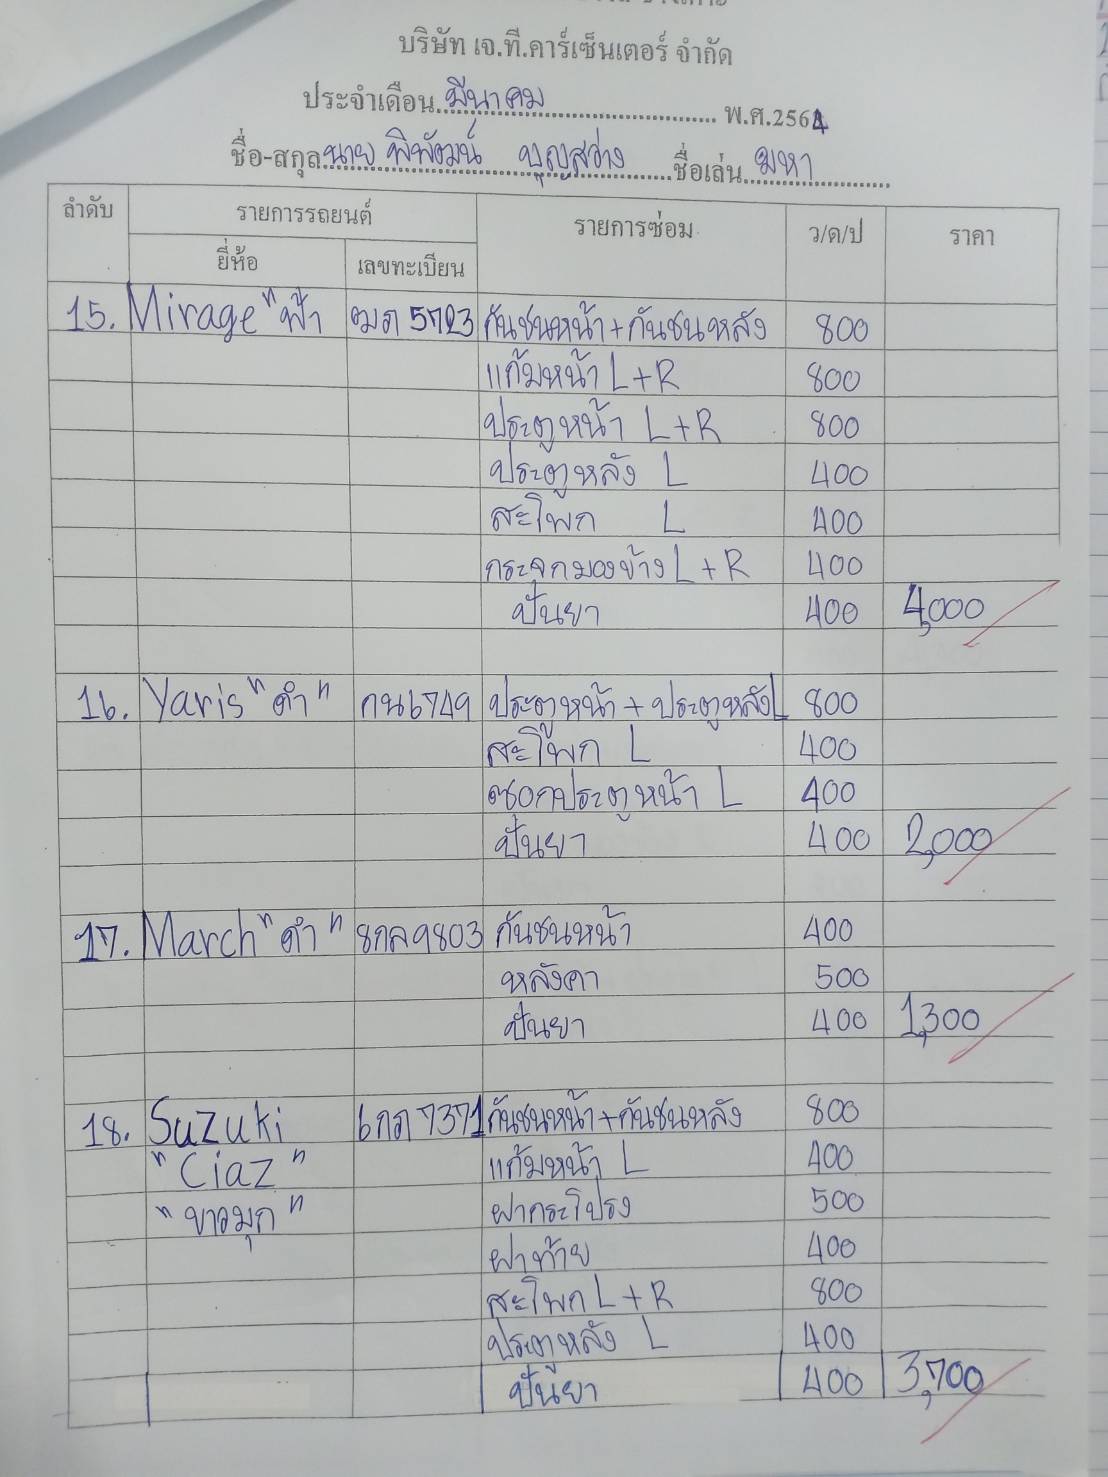 บริษัท เจ.ที.คาร์เซ็นเตอร์ จำกัด
ประจำเดือน มีนาคม พ.ศ.2564
ชื่อ-สกุล นาย พิพัฒน์ บุญสว่าง ชื่อเล่น มหา
ลำดับ รายการรถยนต์ รายการซ่อม ว/ด/ป ราคา
ยี่ห้อ เลขทะเบียน
15. Mirage "ฟ้า 5723 กันชนหน้า+กันชนหลัง 800
แก้มหน้า L+R 800
ประตูหน้า L+R 800
ประตูหลัง L 400
สะโพก L 400
กระจกมองข้าง L+R 400
ปั่นยา 400 4,000
16. Yaris "ดำ" กน6749 ประตูหน้า + ประตูหลังL 800
สะโพก L 400
ซอกประตูหน้า L 400
ปั่นยา 400 2,000
17. March "ดำ" 8กล9803 กันชนหน้า 400
หลังคา 500
ปั่นยา 400 1,300
18. Suzuki 6กภ7371 กันชนหน้า+กันชนหลัง 800
"Ciaz" แก้มหน้า L 400
"ขาวมุก" ฝากระโปรง 500
ฝาท้าย 400
สะโพก L+R 800
ประตูหลัง L 400
ปั่นยา 400 3,700